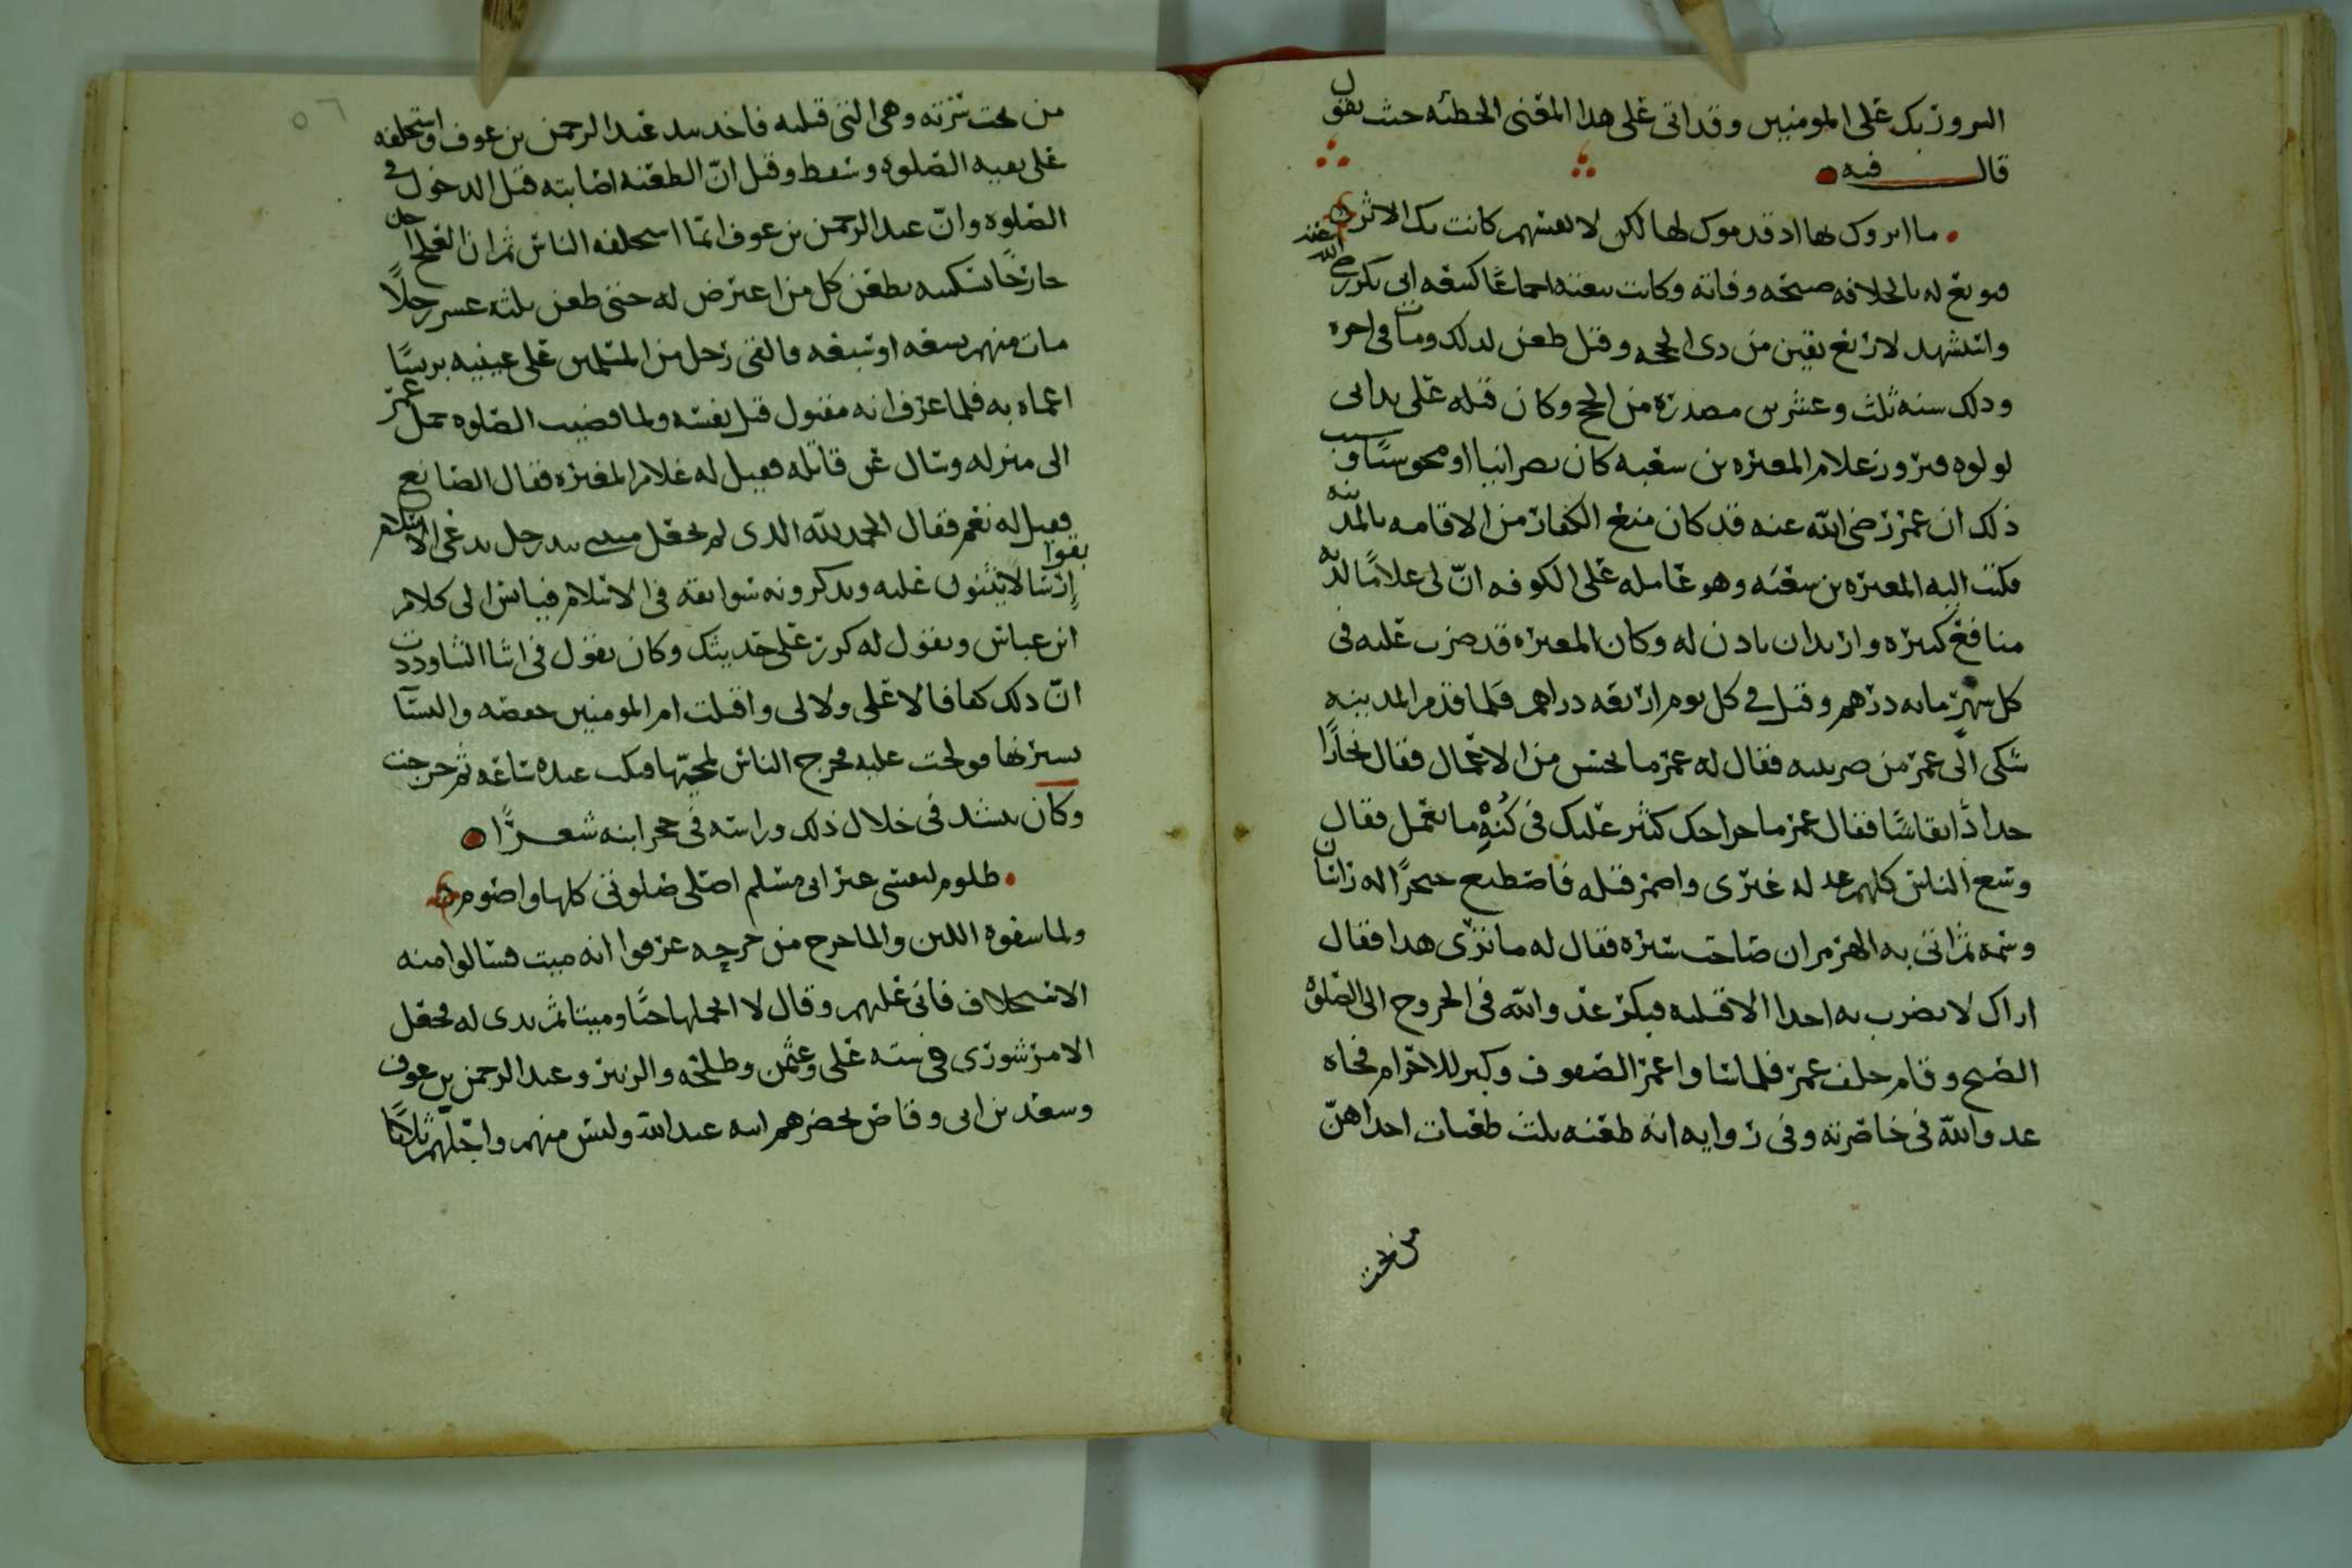 المرور بك على المومنين وقد اتى على هذا المعنى الحطئه حيث يقول
قال فيه
ما اثروك بها اذ قدموك لها لكن لانفسهم كانت بك الاثر
فبويع له بالخلافه صبيحه وفاته وكانت بيعته اجماعًا كبيعه ابي بكر رضي الله عنه
واستشهد لاربع بقين من ذي الحجه وقيل طعن لذلك ومات في اخره
وذلك سنه ثلث وعشرين مصدره من الحج وكان قتله على يد ابي
لولوه فيروز غلام المغيره بن شعبه كان نصرانيا او مجوسيًا وسبب
ذلك ان عمر رضي الله عنه قد كان منع الكفار من الاقامه بالمدينه
فكتب اليه المغيره بن شعبه وهو عامله على الكوفه انّ لي غلامًا لديه
منافع كثيره واريد ان ياذن له وكان المغيره قد ضرب عليه في
كل شهر مايه درهم وقيل في كل يوم اربعه دراهم فلما قدم المدينه
شكى الى عمر من ضريبته فقال له عمر ما تحسن من الاعمال فقال نجارًا
حدادًا نقاشًا فقال عمر ما خراجك كثير عليك في كُنْهِ ما تعمل فقال
وسع الناس كلهم عدله غيري واضمر قتله فاصطنع خنجرًا له راسان
وسمه ثم اتى به الهرمزان صاحب تستره فقال له ما ترى هذا فقال
اراك لا تضرب به احدا الا قتلته فبكر عدو الله في الخروج الى الصلوه
الصبح وقام خلف عمر فلما ساوا عمر الصفوف وكبر للاحرام فجاه
عدو الله في خاصرته وفي روايه انه طعنه ثلث طعنات احداهنّ
من تحت
من تحت سرته وهي التي قتلته فاخذ بيد عبد الرحمن بن عوف واستخلفه
على بقيه الصلوه وسقط وقيل انّ الطعنه اصابته قبل الدخول في
الصلوه وانّ عبد الرحمن بن عوف انما استخلفه الناس ثم ان العلج دخل
خارجًا بسكينه يطعن كل من اعترض له حتى طعن ثلثه عشر رجلًا
مات منهم تسعه او سبعه فالقى رجل من المسلمين على عينيه برنسًا
اعماه به فلما عرف انه مقتول قتل نفسه ولما قضيت الصلوه حمل عمر
الى منزله وسال عن قاتله فقيل له غلام المغيره فقال الصانع
فقيل له نعم فقال الحمد لله الذي لم يجعل ميتتي بيد رجل يدعي الاسلام بقوا
ارسالا يثنون عليه ويذكرونه سوابقه في الاسلام فيانس الى كلام
ابن عباس ويقول له كرر على حديثك وكان يقول في اثنا الثنا وددت
انّ ذلك كفافا لا علي ولا لي واقبلت ام المومنين حفصه والنسا
يسترنها فولجت عليه فخرج الناس لمجيتها فبكت عنده ساعه ثم خرجت
وكان ينشد في خلال ذلك وراسه في حجر ابنه شعرًا
ظلوم لنفسي غير اني مسلم اصلي صلوتي كلها واصوم
ولما سقوه اللبن والما خرج من جرحه عرفوا انه ميت فسالوا منه
الاستخلاف فابى عليهم وقال لا احملها حيًا وميتا ثم بدى له فجعل
الامر شورى في سته علي وعثمن وطلحه والزبير وعبد الرحمن بن عوف
وسعد بن ابي وقاص يحضرهم ابنه عبد الله وليس منهم واجّلهم ثلاثًا